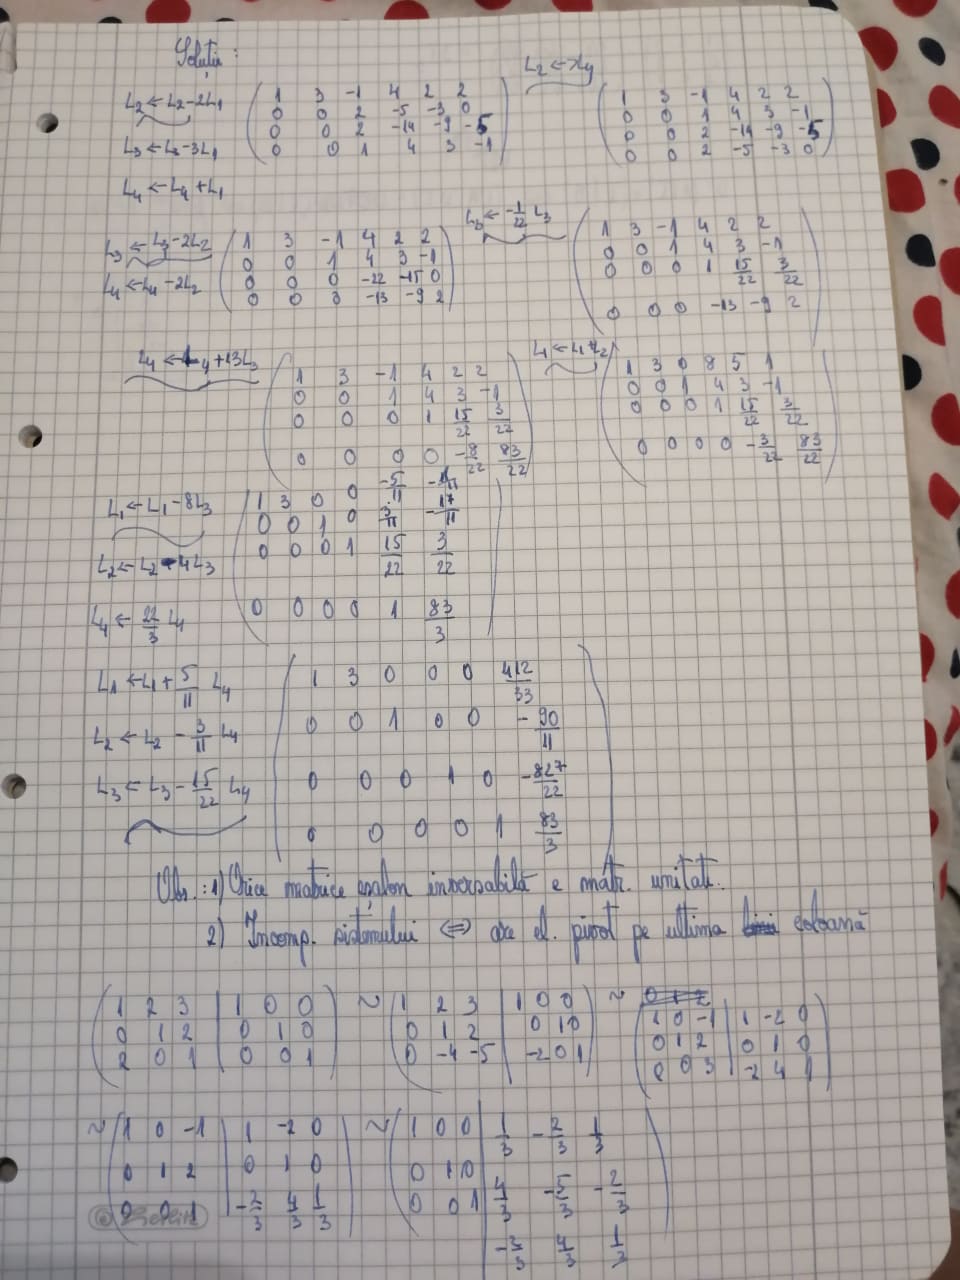 Soluții:
L₂ ← L₂ - 2L₁
L₃ ← L₃ - 3L₁
L₄ ← L₄ + L₁
1 3 -1 4 2 2
0 0 2 -5 -3 0
0 0 2 -14 -9 -5
0 0 1 4 3 -1
1 3 -1 4 2 2
0 0 1 4 3 -1
0 0 2 -14 -9 -5
0 0 2 -5 -3 0
L₃ ← L₃ - 2L₂
L₄ ← L₄ - 2L₂
1 3 -1 4 2 2
0 0 1 4 3 -1
0 0 0 -22 -15 0
0 0 0 -13 -9 2
L₃ ← -1/22 L₃
1 3 -1 4 2 2
0 0 1 4 3 -1
0 0 0 1 15/22 3/22
0 0 0 -13 -9 2
L₄ ← L₄ + 13L₃
1 3 -1 4 2 2
0 0 1 4 3 -1
0 0 0 1 15/22 3/22
0 0 0 0 83/22
L₁ ← L₁ + L₂
1 3 0 8 5 1
0 0 1 4 3 -1
0 0 0 1 15/22 3/22
0 0 0 0 -3/22 83/22
L₁ ← L₁ - 8L₃
L₂ ← L₂ - 4L₃
L₄ ← 22/3 L₄
1 3 0 0 -5/11
0 0 1 0 3/11 -17/11
0 0 0 1 15/22 3/22
0 0 0 0 1 83/3
L₁ ← L₁ + 5/11 L₄
L₂ ← L₂ - 3/11 L₄
L₃ ← L₃ - 15/22 L₄
1 3 0 0 0 412/33
0 0 1 0 0 -90/11
0 0 0 1 0 -827/22
0 0 0 0 1 83/3
Obs.: 1) Orice matrice eșalon inversabilă e matr. unitate.
2) Incomp. sistemului ⇔ are el. pivot pe ultima coloană
1 2 3 | 1 0 0
0 1 2 | 0 1 0
2 0 1 | 0 0 1
~
1 2 3 | 1 0 0
0 1 2 | 0 1 0
0 -4 -5 | -2 0 1
~
1 0 -1 | 1 -2 0
0 1 2 | 0 1 0
0 0 3 | -2 4 1
~
1 0 -1 | 1 -2 0
0 1 2 | 0 1 0
0 0 1 | -2/3 4/3 1/3
~
1 0 0 | 1/3 -2/3 1/3
0 1 0 | 4/3 -5/3 -2/3
0 0 1 | -2/3 4/3 1/3